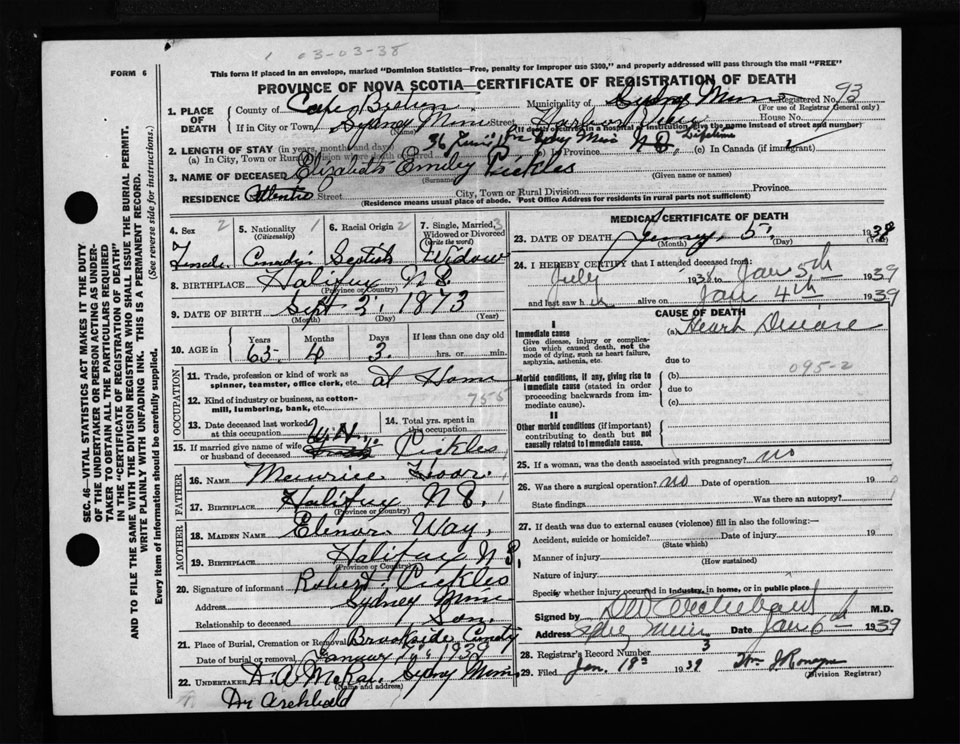 1 03-03-38
FORM 6
This form if placed in an envelope, marked "Dominion Statistics—Free, penalty for improper use $300," and properly addressed will pass through the mail "FREE"
PROVINCE OF NOVA SCOTIA—CERTIFICATE OF REGISTRATION OF DEATH
1. PLACE OF DEATH County of Cape Breton Municipality of Sydney Mines Registered No. 93
(For use of Registrar General only)
If in City or Town Sydney Mines Street Harbor View House No.
(Name) (If death occurred in a hospital or institution, give the name instead of street and number)
2. LENGTH OF STAY (in years, months and days) 36
(a) In City, Town or Rural Division where death occurred (b) In Province Lifetime (c) In Canada (if immigrant)
3. NAME OF DECEASED Elizabeth Emily Pickles
(Surname) (Given name or names)
RESIDENCE Atlantic Street City, Town or Rural Division Province
(Residence means usual place of abode. Post Office Address for residents in rural parts not sufficient)
4. Sex 2 5. Nationality 1 (Citizenship) 6. Racial Origin 2 7. Single, Married, Widowed or Divorced 3 (write the word)
Female Scotish Widow
8. BIRTHPLACE Halifax N.S.
(Province or Country)
9. DATE OF BIRTH Sept 2, 1873
(Month) (Day) (Year)
10. AGE in Years Months Days If less than one day
65 4 3 hrs. or min.
OCCUPATION
11. Trade, profession or kind of work as spinner, teamster, office clerk, etc. at Home
12. Kind of industry or business, as cotton-mill, lumbering, bank, etc. 755
13. Date deceased last worked at this occupation 14. Total yrs. spent in this occupation
15. If married give name of wife or husband of deceased Pickles
FATHER
16. NAME Maurice Hoar
17. BIRTHPLACE Halifax N.S. 1
(Province or Country)
MOTHER
18. MAIDEN NAME Elinor Way,
19. BIRTHPLACE Halifax N.S.
(Province or Country)
20. Signature of informant Robert Pickles
Address Sydney Mines
Relationship to deceased Son.
21. Place of Burial, Cremation or Removal Brookside
Date of burial or removal January 1939
22. UNDERTAKER D. A. McRae, Sydney Mines
(Name and address)
Dr Archbald
MEDICAL CERTIFICATE OF DEATH
23. DATE OF DEATH 5, 193
(Month) (Day) (Year)
24. I HEREBY CERTIFY that I attended deceased from:
July 1938 to Jan 5th 1939
and last saw h alive on Jan 4th 1939
CAUSE OF DEATH
I
Immediate cause
Give disease, injury or complication which caused death, not the mode of dying, such as heart failure, asphyxia, asthenia, etc.
(a) Heart Disease
due to
095-2
Morbid conditions, if any, giving rise to immediate cause (stated in order proceeding backwards from immediate cause).
(b)
due to
(c)
II
Other morbid conditions (if important) contributing to death but not causally related to immediate cause.
25. If a woman, was the death associated with pregnancy? no
26. Was there a surgical operation? no Date of operation 19
State findings Was there an autopsy?
27. If death was due to external causes (violence) fill in also the following:—
Accident, suicide or homicide? Date of injury 19
(State which)
Manner of injury
(How sustained)
Nature of injury
Specify whether injury occurred in industry, in home, or in public place
Signed by Archibald M.D.
Address Date Jan 6 1939
28. Registrar's Record Number 3
29. Filed Jan. 18 1939
(Division Registrar)
SEC. 46—VITAL STATISTICS ACT MAKES IT THE DUTY
OF THE UNDERTAKER OR PERSON ACTING AS UNDERTAKER TO OBTAIN ALL THE PARTICULARS REQUIRED
IN THE "CERTIFICATE OF REGISTRATION OF DEATH"
AND TO FILE THE SAME WITH THE DIVISION REGISTRAR WHO SHALL ISSUE THE BURIAL PERMIT.
WRITE PLAINLY WITH UNFADING INK. THIS IS A PERMANENT RECORD.
Every item of information should be carefully supplied. (See reverse side for instructions.)